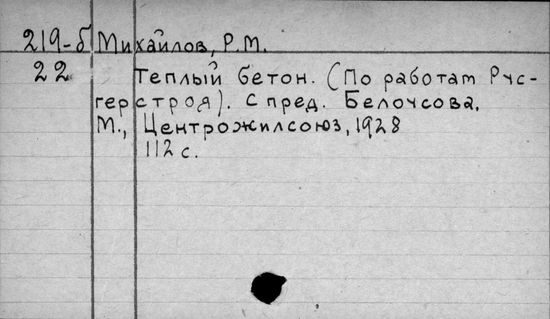 219-б Михайлов, Р.М.
22 Теплый бетон. (По работам Рус-
герстроя). С пред. Белоусова.
М., Центрожилсоюз, 1928
112 с.